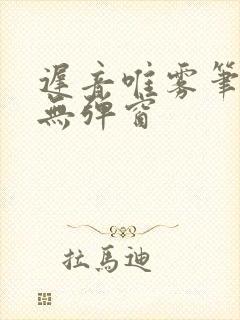 遲音唯雾筆
無弹窗
拉馬迪